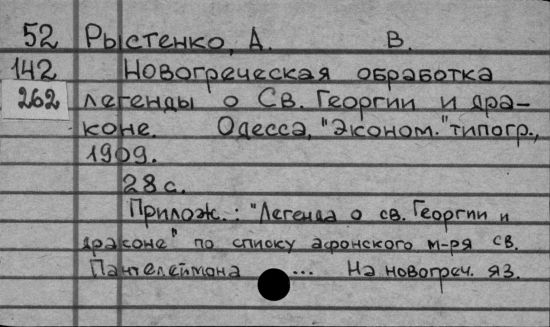 52 Рыстенко, А. В.
142 Новогреческая обработка
262 легенды о Св. Георгии и дра-
коне. Одесса, "Эконом." типогр.,
1909.
28 с.
Прилож.: "Легенда о св. Георгии и
драконе" по списку афонского м-ря св.
Пантелеймона ... На новогреч. яз.